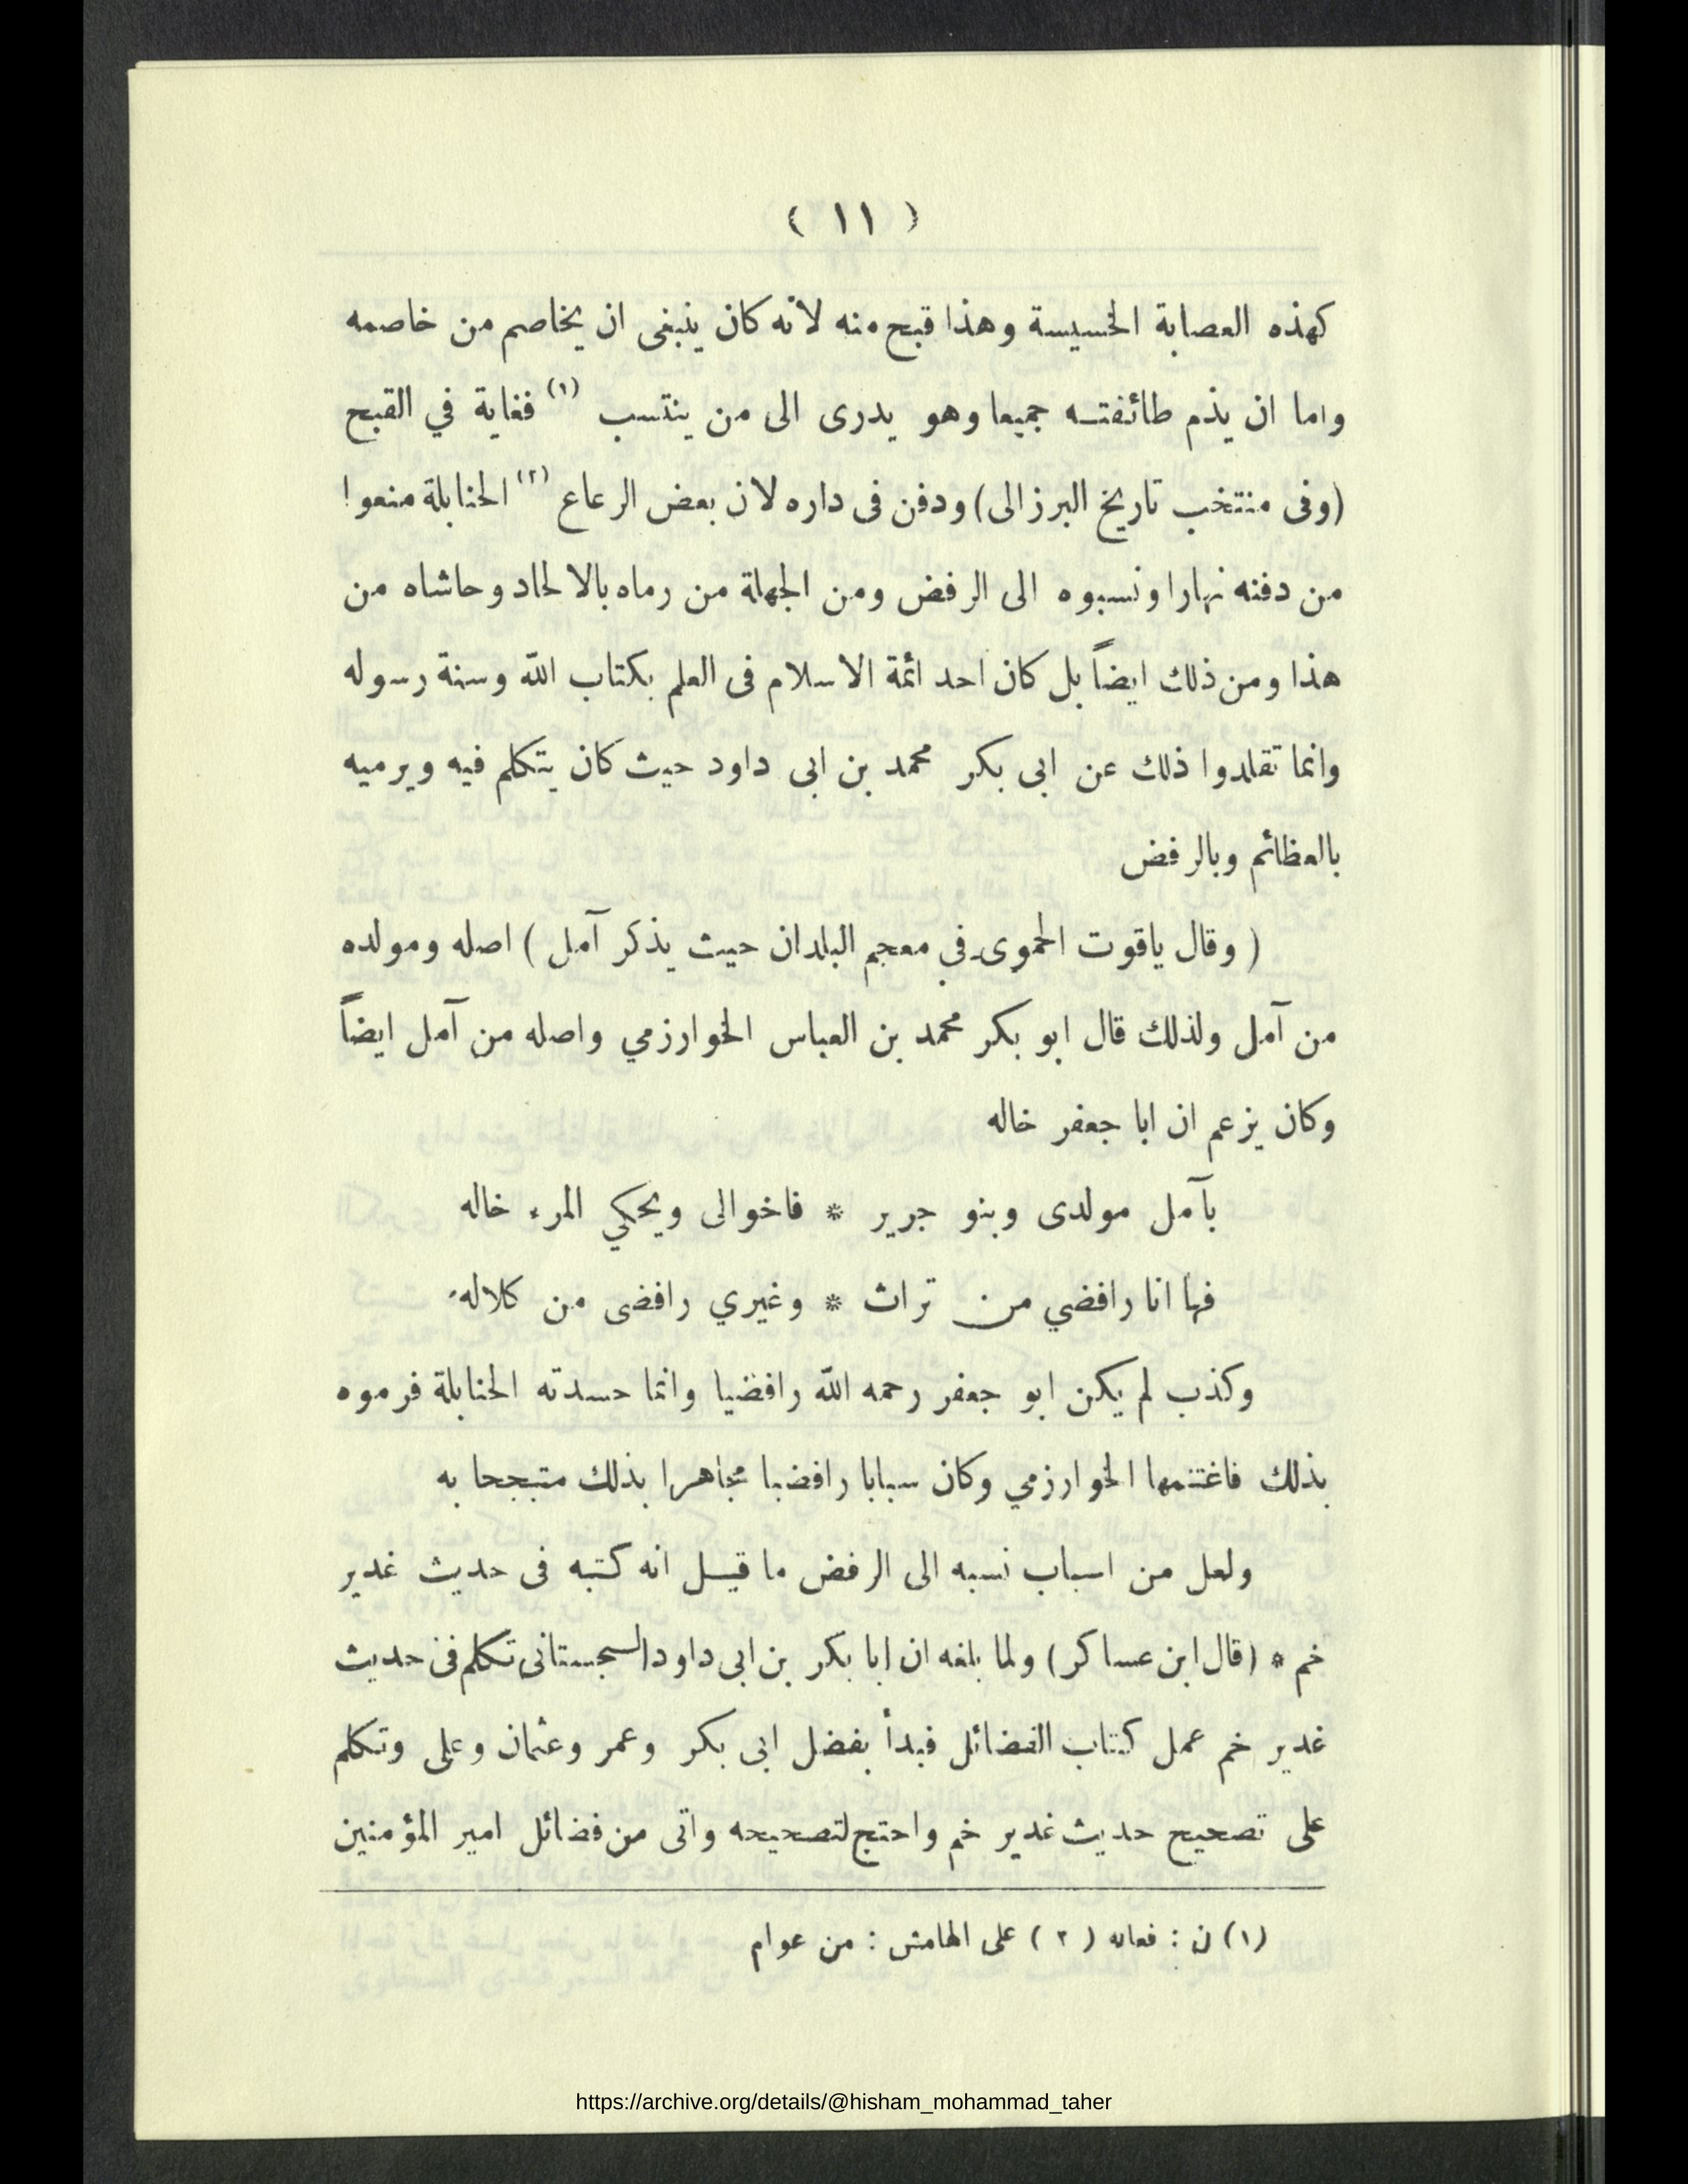 ( ١١ )
كهذه العصابة الخسيسة وهذا قبح منه لانه كان ينبغى ان يخاصم من خاصمه
واما ان يذم طائفتـه جميعا وهو يدرى الى من ينتسب (١) فغاية في القبح
(وفى منتخب تاريخ البرزالى) ودفن فى داره لان بعض الرعاع (٢) الحنابلة منعوا
من دفنه نهارا ونسبوه الى الرفض ومن الجهلة من رماه بالالحاد وحاشاه من
هذا ومن ذلك ايضاً بل كان احد ائمة الاسلام فى العلم بكتاب الله وسنة رسوله
وانما تقلدوا ذلك عن ابى بكر محمد بن ابى داود حيث كان يتكلم فيه ويرميه
بالعظائم وبالرفض
( وقال ياقوت الحموى في معجم البلدان حيث يذكر آمل ) اصله ومولده
من آمل ولذلك قال ابو بكر محمد بن العباس الخوارزمي واصله من آمل ايضاً
وكان يزعم ان ابا جعفر خاله
بآمل مولدى وبنو جرير * فاخوالى ويحكي المرء خاله
فها انا رافضي من تراث * وغيري رافضى من كلاله
وكذب لم يكن ابو جعفر رحمه الله رافضيا وانما حسدته الحنابلة فرموه
بذلك فاغتنمها الخوارزمي وكان سبابا رافضيا مجاهرا بذلك متبجحا به
ولعل من اسباب نسبه الى الرفض ما قيـل انه كتبه فى حديث غدير
خم * (قال ابن عساكر) ولما بلغه ان ابا بكر بن ابى داود السجستانى تكلم فى حديث
غدير خم عمل كتاب الفضائل فبدأ بفضل ابى بكر وعمر وعثمان وعلى وتكلم
على تصحيح حديث غدير خم واحتج لتصحيحه واتى من فضائل امير المؤمنين
(١) ن : فعانه ( ٢ ) على الهامش : من عوام
https://archive.org/details/@hisham_mohammad_taher